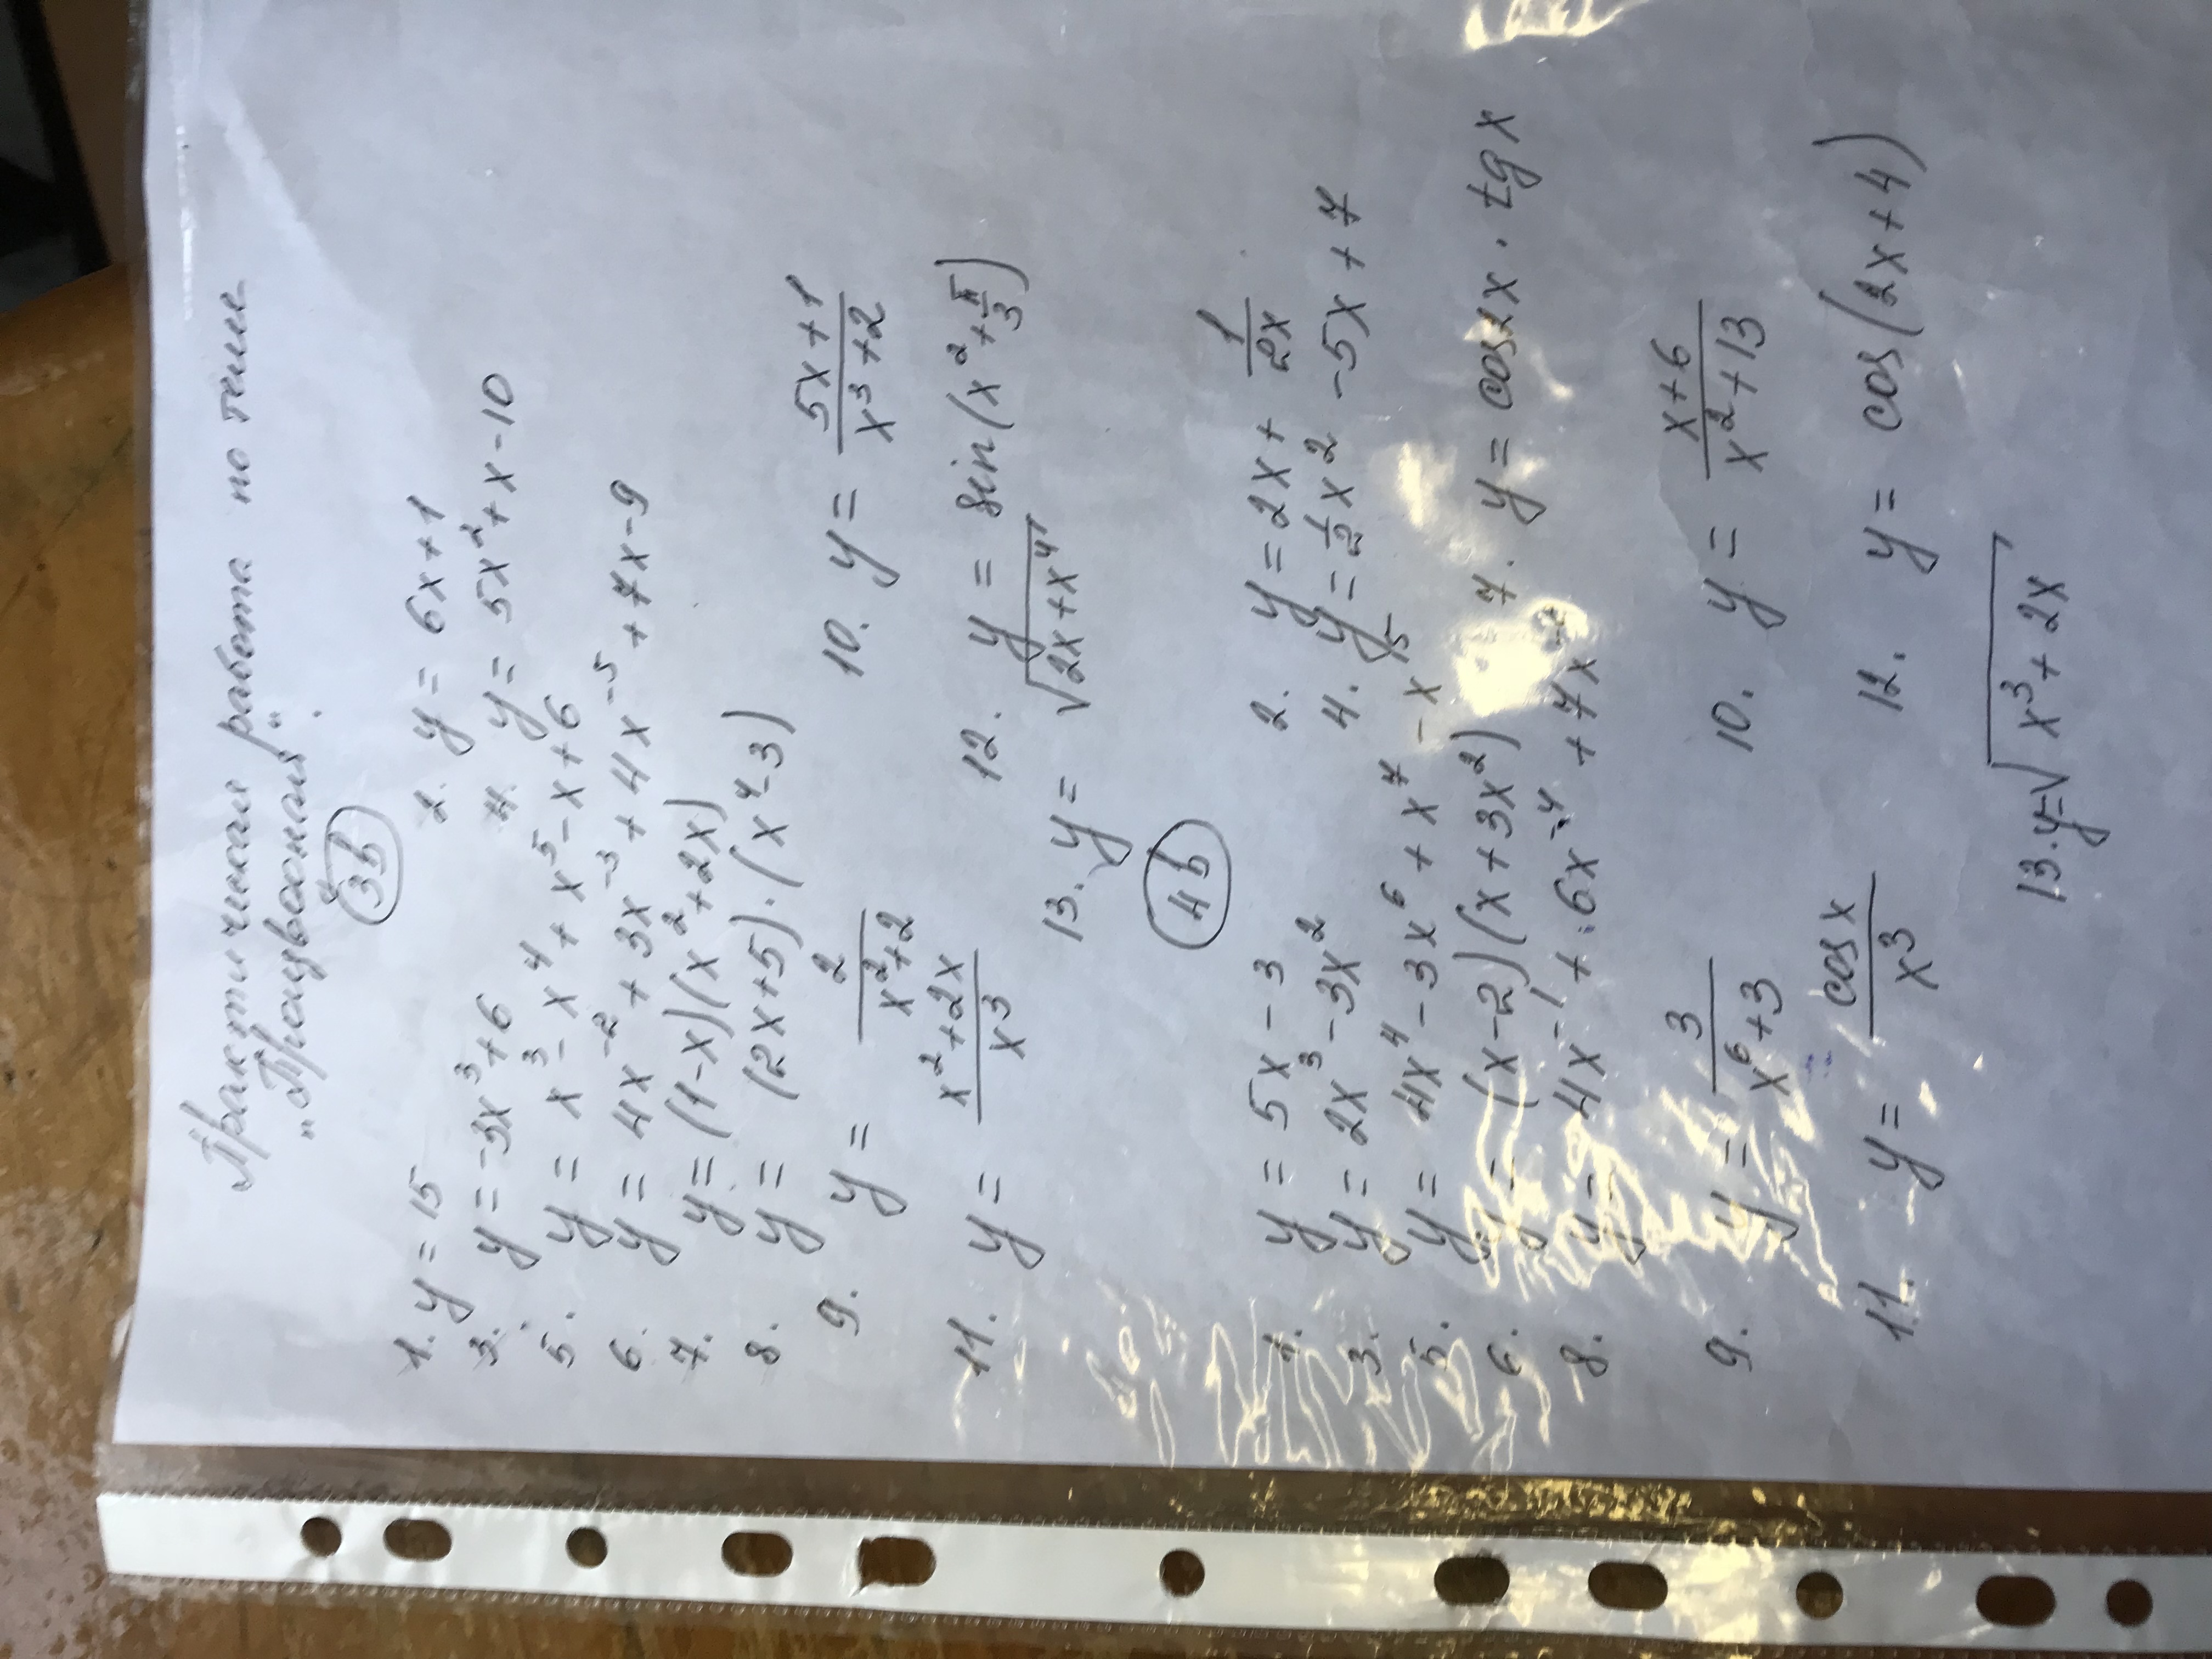 Практическая работа по теме
„Производная“.
3в
1. y = 15 2. y = 6x+1
3. y = -3x³+6 4. y = 5x²+x-10
5. y = x³-x⁴+x⁵-x+6
6. y = 4x⁻²+3x⁻³+4x⁻⁵+7x-9
7. y = (1-x)(x²+2x)
8. y = (2x+5)·(x⁴-3)
9. y = 2/(x²+2) 10. y = (5x+1)/(x³+2)
11. y = (x²+2x)/x³ 12. y = sin(x²+π/3)
13. y = √(2x+x⁴)
4в
1. y = 5x-3 2. y = 2x+1/(2x)
3. y = 2x³-3x² 4. y = ½x²-5x+7
5. y = 4x⁴-3x⁶+x⁷-x¹⁵
6. y = (x-2)(x+3x²) 7. y = cos2x·tgx
8. y = 4x⁻¹+6x⁻⁴+7x
9. y = 3/(x⁶+3) 10. y = (x+6)/(x²+13)
11. y = cosx/x³ 12. y = cos(2x+4)
13. y = √(x³+2x)